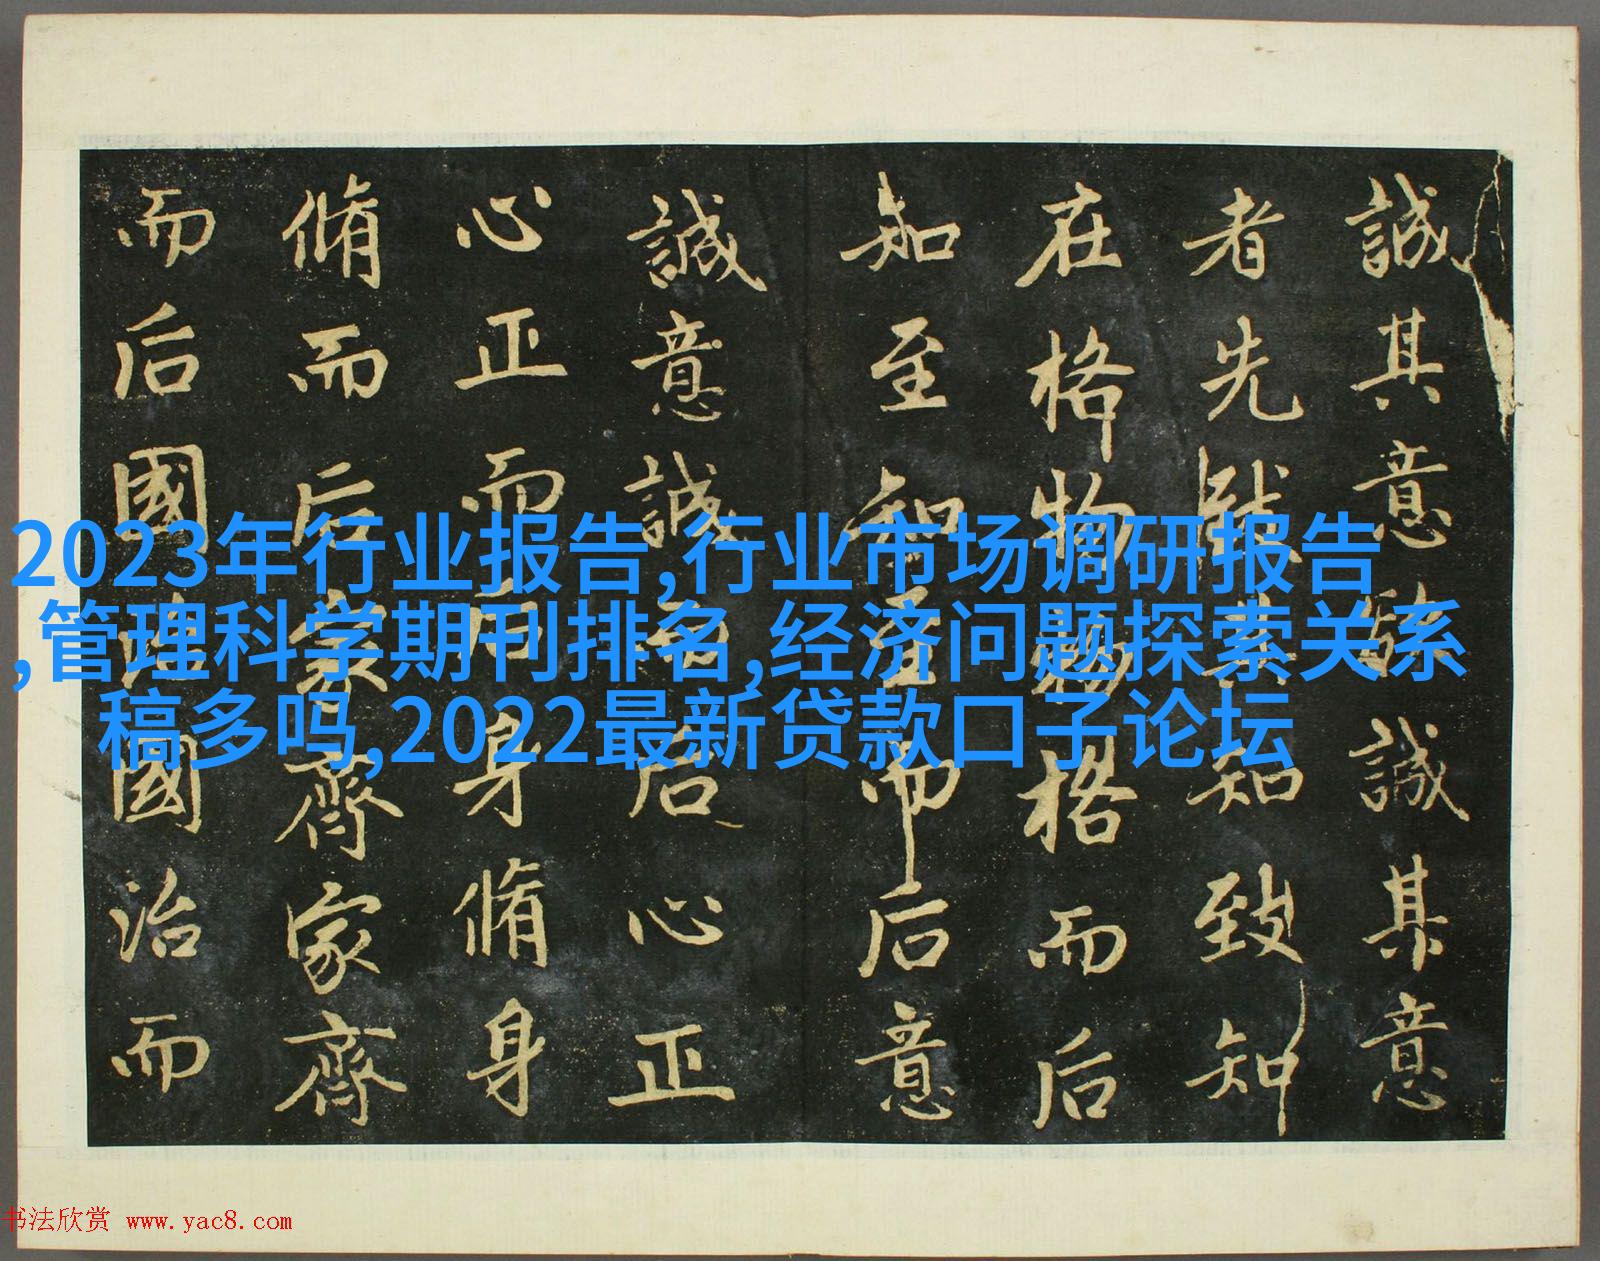 誠其意欲誠其意
者先致其知致知
在格物物格而后
知至知至而后意
誠意誠而后心正
心正而后身脩身
脩而后家齊家齊
而后國治國治而
2023年行业报告,行业市场调研报告
,管理科学期刊排名,经济问题探索关系
稿多吗,2022最新贷款口子论坛
书法欣赏 www.yac8.com